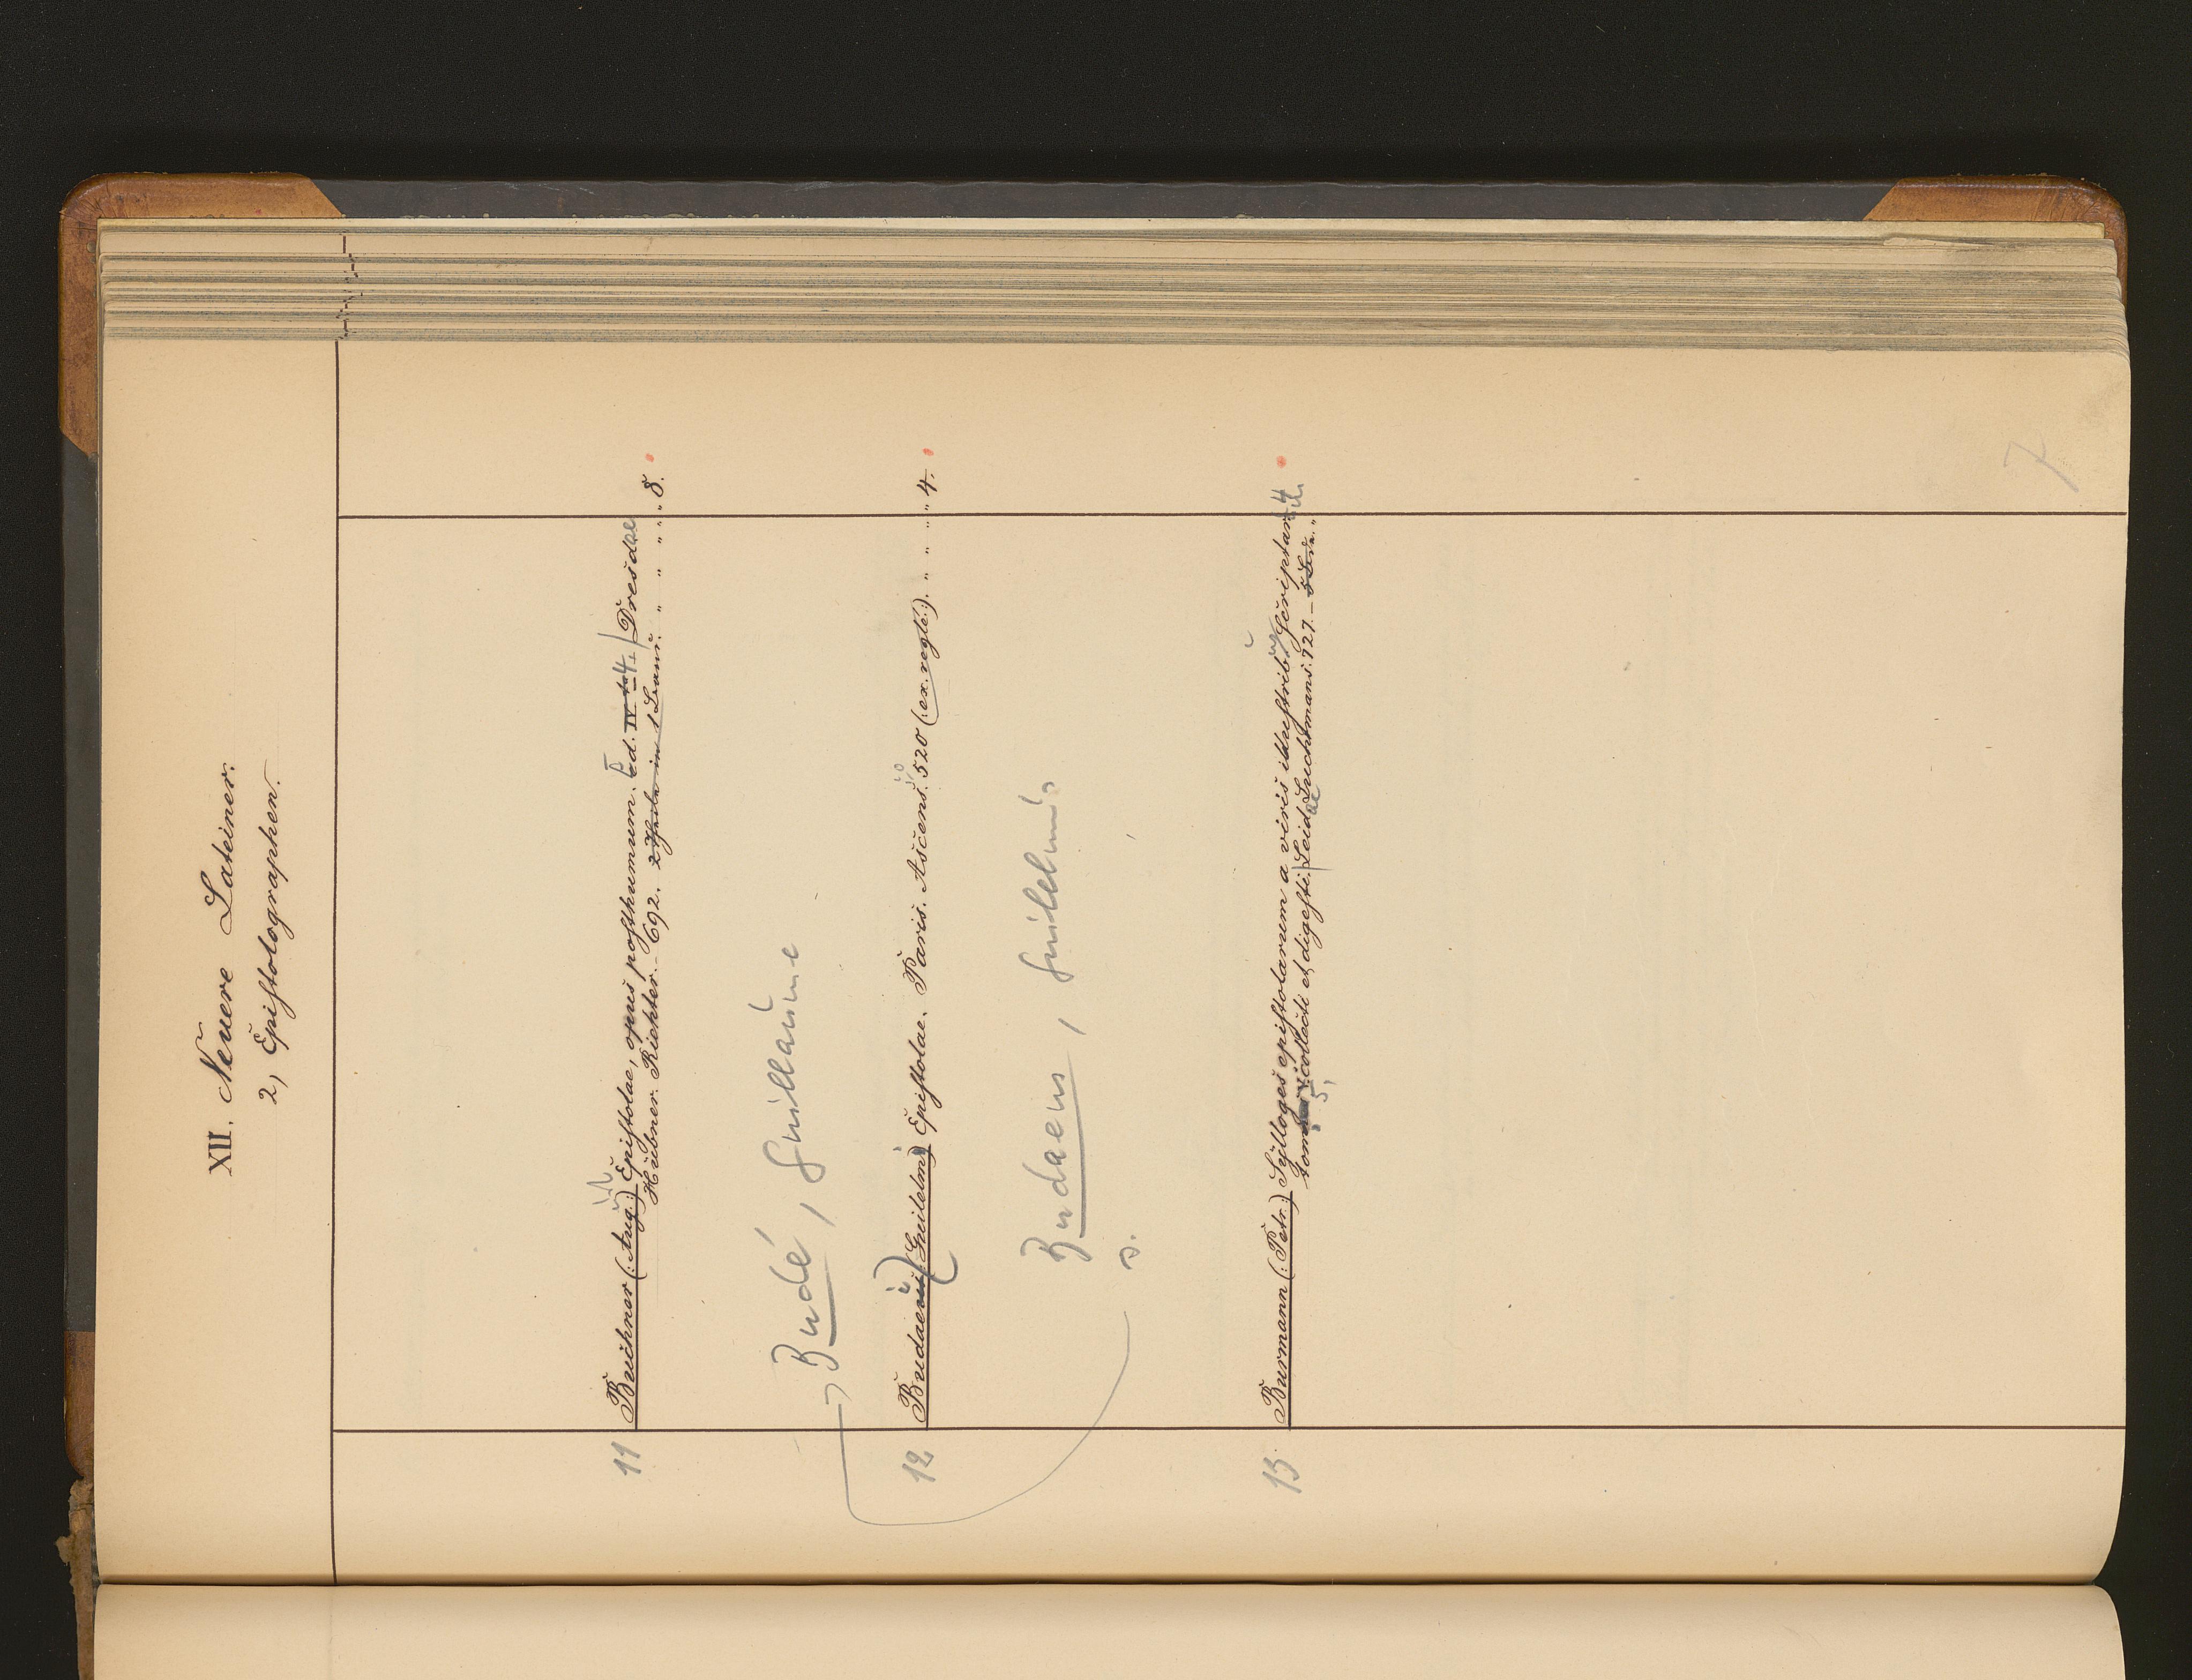 XII. Neuere Lateiner.
2, Epistolographen.
11 Buchner (: Aug:) Epistolae, opus posthumum. Ed. IV 4. Dresdae
Hübner. Richter. 692. 2 Theile in 1 Band. " " " " 8.
Budé, Guillaume
12 Budaei (Guilelmi) Epistolae. Paris. Ascens. 520 (: ex. reglé:). " " " " 4.
Budaeus, Guilelmus
s.
13 Burmann (: Petr:) Sylloges epistolarum a viris illustribus scriptar. 4.
tomi 5, collecti et digesti. Leidae Luchtmans. 727. "
7